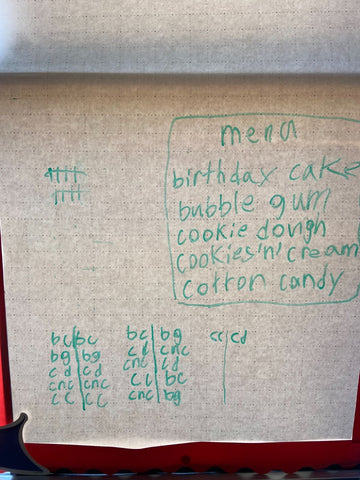 menu
birthday cake
bubble gum
cookie dough
cookies'n'cream
cotton candy
bc|bc
bg|bg
cd|cd
cnc|cnc
cc|cc
bc|bg
cd|cnc
cnc|cd
cc|bc
cnc|bg
cc|cd